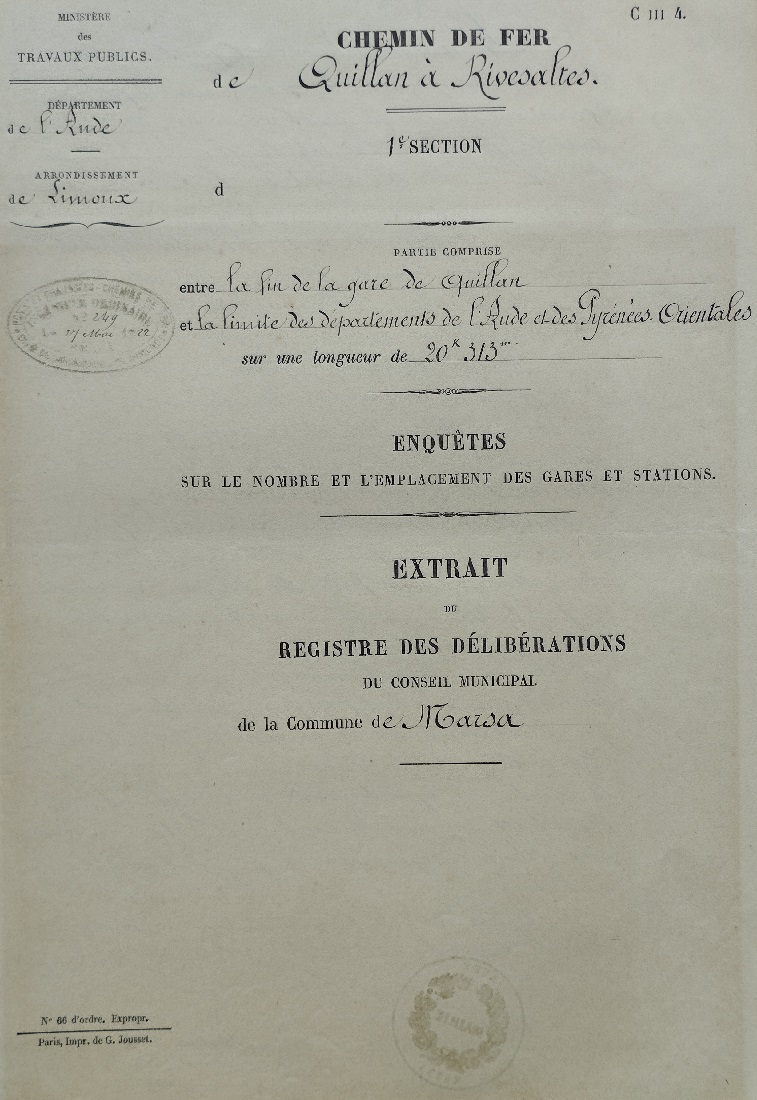 MINISTÈRE
des
TRAVAUX PUBLICS.
DÉPARTEMENT
de l'Aude
ARRONDISSEMENT
de Limoux
C III 4.
CHEMIN DE FER
de Quillan à Rivesaltes.
1e SECTION
d
PARTIE COMPRISE
entre la fin de la gare de Quillan
et la limite des départements de l'Aude et des Pyrénées-Orientales
sur une longueur de 20K 313m
N° 249
27 Mai
ENQUÊTES
SUR LE NOMBRE ET L'EMPLACEMENT DES GARES ET STATIONS.
EXTRAIT
DU
REGISTRE DES DÉLIBÉRATIONS
DU CONSEIL MUNICIPAL
de la Commune de Marsa
N° 66 d'ordre. Expropr.
Paris, Impr. de G. Jousset.